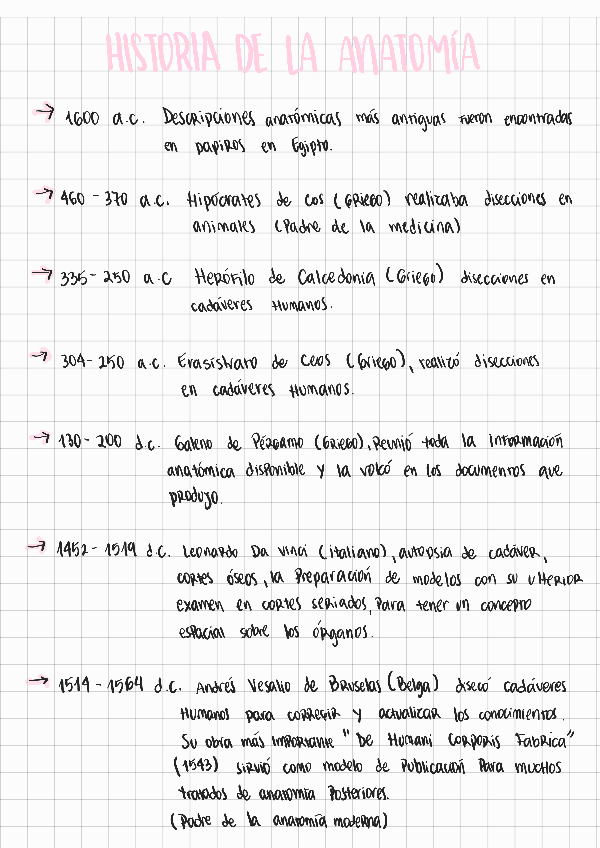 HISTORIA DE LA ANATOMÍA
→ 1600 a.c. Descripciones anatómicas más antiguas fueron encontradas
en papiros en Egipto.
→ 460 - 370 a.c. Hipócrates de Cos (Griego) realizaba disecciones en
animales (Padre de la medicina)
→ 335 - 250 a.c Herófilo de Calcedonia (Griego) disecciones en
cadáveres Humanos.
→ 304 - 250 a.c. Erasístrato de Ceos (Griego), realizó disecciones
en cadáveres Humanos.
→ 130 - 200 d.c. Galeno de Pérgamo (Griego), Reunió toda la información
anatómica disponible y la volcó en los documentos que
produjo.
→ 1452 - 1519 d.c. Leonardo Da Vinci (italiano), autopsia de cadáver,
cortes óseos, la Preparación de modelos con su ulterior
examen en cortes seriados, Para tener un concepto
espacial sobre los órganos.
→ 1514 - 1564 d.c. Andrés Vesalio de Bruselas (Belga) disecó cadáveres
Humanos para corregir y actualizar los conocimientos.
Su obra más importante "De Humani Corporis Fabrica"
(1543) sirvió como modelo de Publicación Para muchos
tratados de anatomia Posteriores.
(Padre de la anatomía moderna)